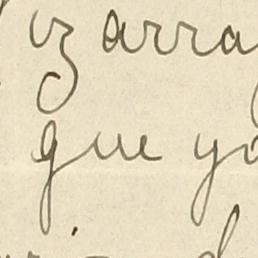 izarra
que yo